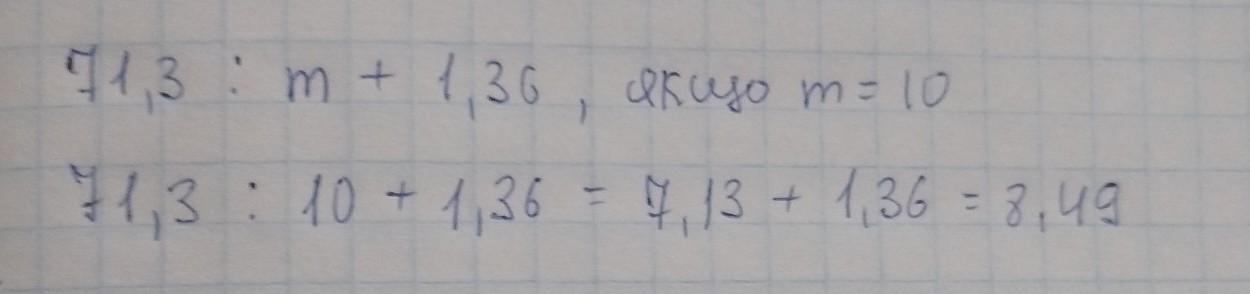 71,3 : m + 1,36 , якщо m = 10
71,3 : 10 + 1,36 = 7,13 + 1,36 = 8,49